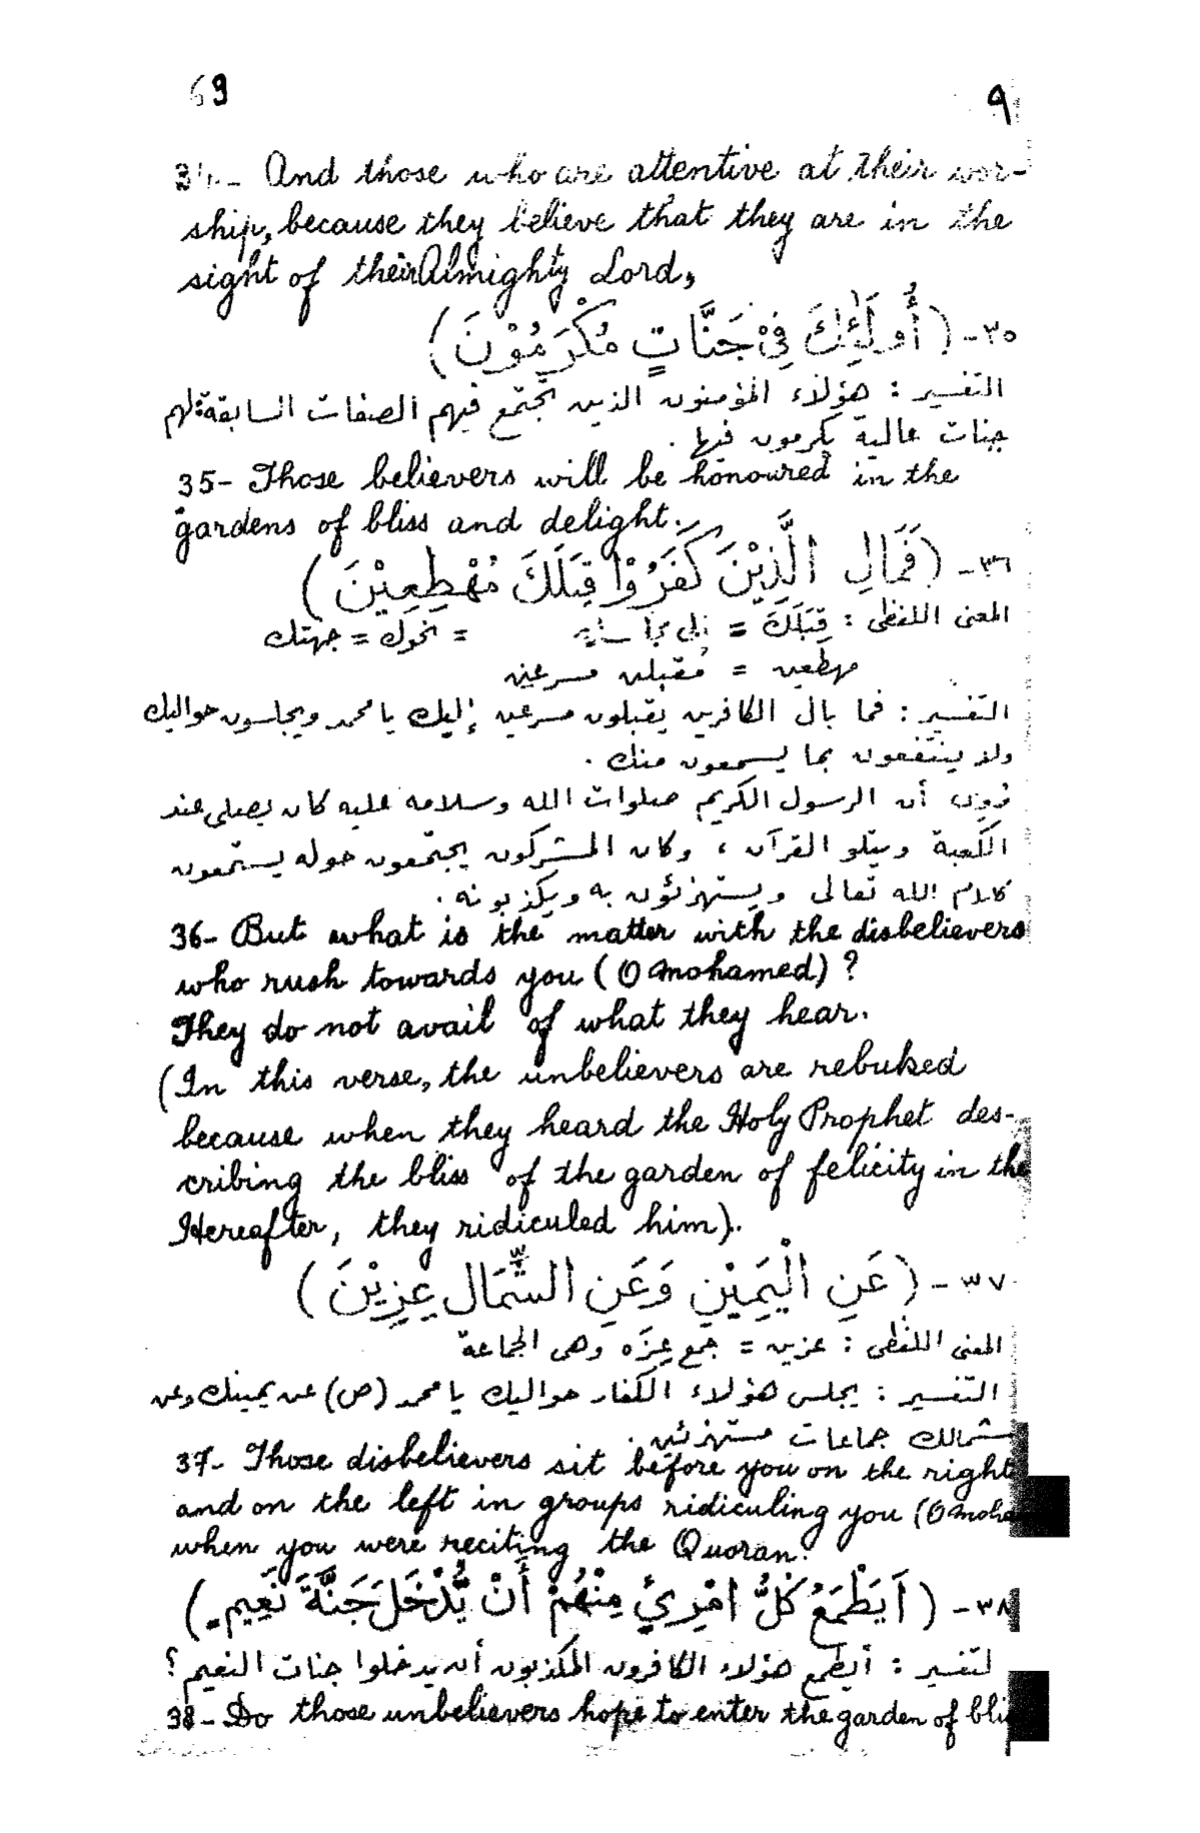 69
٩
34- And those who are attentive at their wor-
ship, because they believe that they are in the
sight of their Almighty Lord,
٣٥- (أُولَٰئِكَ فِيْ جَنَّاتٍ مُكْرَمُوْنَ)
التفسير : هؤلاء المؤمنون الذين تجتمع فيهم الصفات السابقة؛ لهم
جنات عالية يكرمون فيها .
35- Those believers will be honoured in the
gardens of bliss and delight.
٣٦- (فَمَالِ الَّذِيْنَ كَفَرُوْا قِبَلَكَ مُهْطِعِيْنَ)
المعنى اللفظى : قِبَلَكَ = = نحوك = جهتك
مهطعين = مُقبلين مسرعين
التفسير : فما بال الكافرين يقبلون مسرعين إليك يا محمد ويجلسون حواليك
ولا ينتفعون بما يسمعون منك .
رُوِىَ أن الرسول الكريم صلوات الله وسلامه عليه كان يصلى عند
الكعبة ويتلو القرآن ، وكان المشركون يجتمعون حوله يستمعون
كلام الله تعالى ويستهزئون به ويكذبونه .
36- But what is the matter with the disbelievers
who rush towards you (O Mohamed) ?
They do not avail of what they hear.
(In this verse, the unbelievers are rebuked
because when they heard the Holy Prophet des-
cribing the bliss of the garden of felicity in the
Hereafter, they ridiculed him).
٣٧- (عَنِ الْيَمِيْنِ وَعَنِ الشِّمَالِ عِزِيْنَ)
المعنى اللفظى : عزين = جمع عِزَه وهى الجماعة
التفسير : يجلس هؤلاء الكفار حواليك يا محمد (ص) عن يمينك وعن
شمالك جماعات مستهزئين .
37- Those disbelievers sit before you on the right
and on the left in groups ridiculing you (O Moha
when you were reciting the Quoran.
٣٨- (اَيَطْمَعُ كُلُّ امْرِئٍ مِنْهُمْ أَنْ يُّدْخَلَ جَنَّةَ نَعِيمٍ)
لتفسير : أيطمع هؤلاء الكافرون المكذبون أن يدخلوا جنات النعيم ؟
38- Do those unbelievers hope to enter the garden of bli